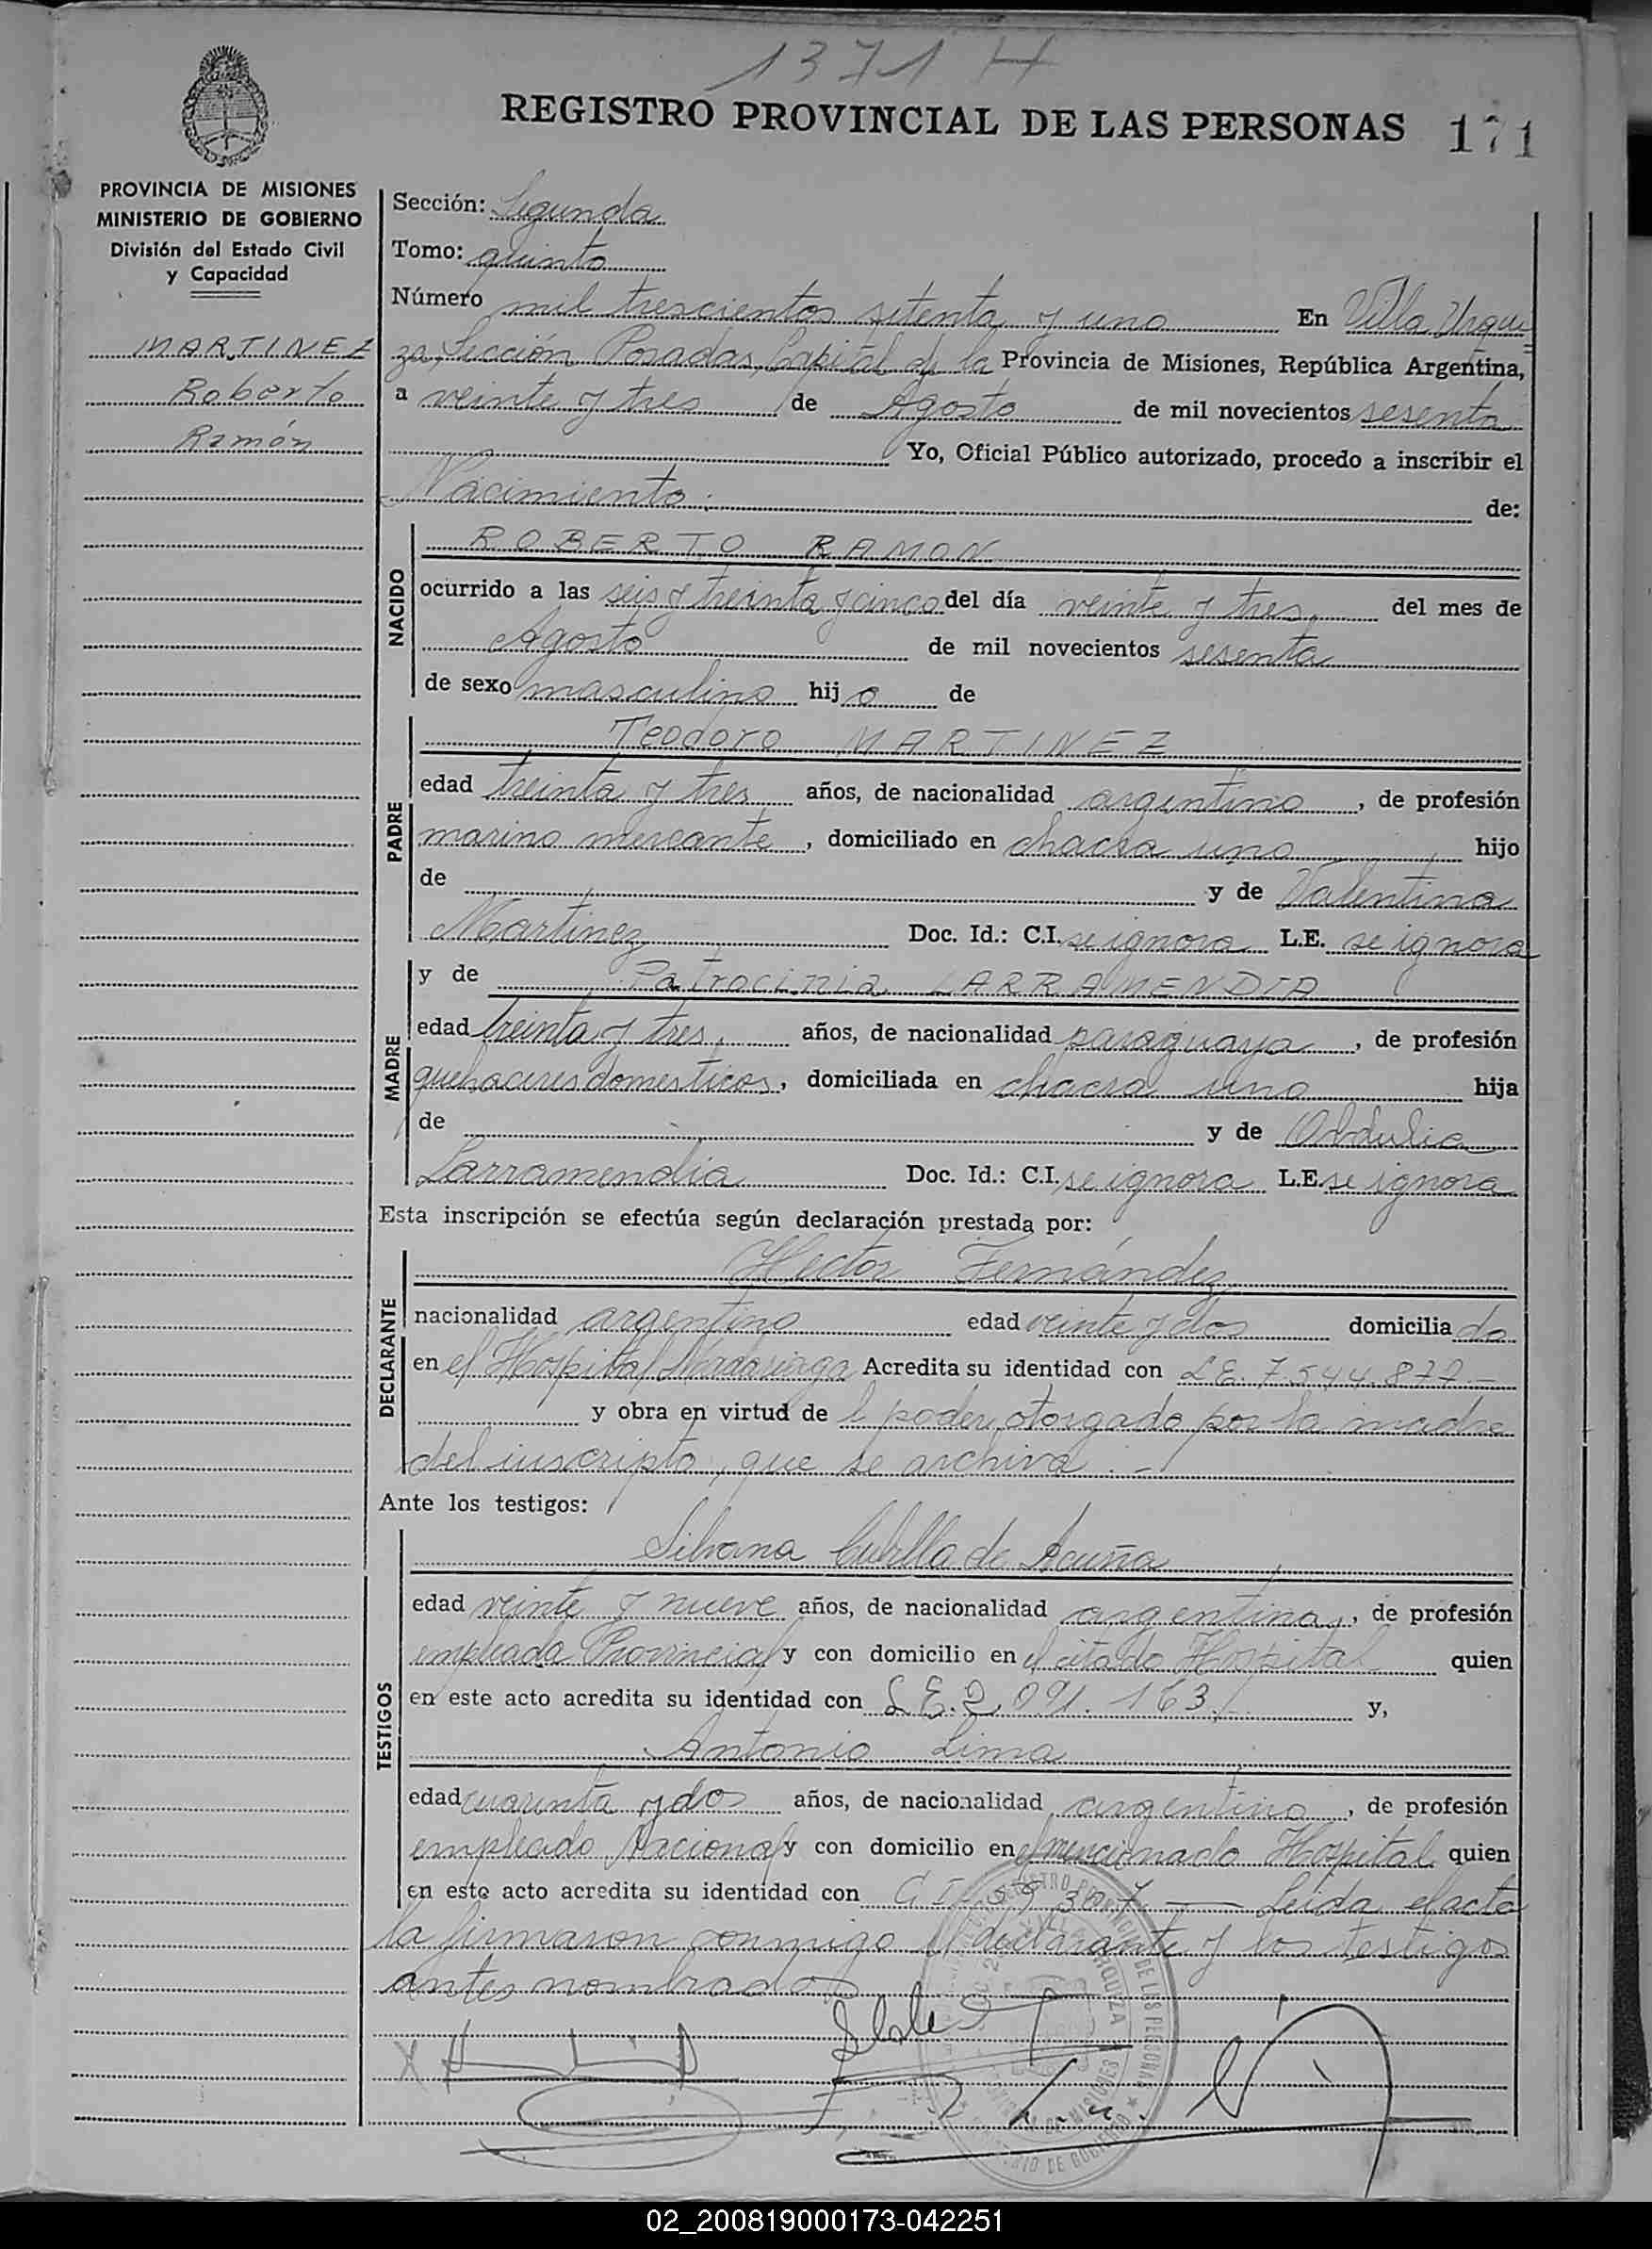 1371 H
REGISTRO PROVINCIAL DE LAS PERSONAS 171
PROVINCIA DE MISIONES
MINISTERIO DE GOBIERNO
División del Estado Civil
y Capacidad
MARTINEZ
Roberto
Ramón
Sección: Segunda
Tomo: quinto
Número mil trescientos setenta y uno En Villa Urqui
za, Sección Posadas, Capital de la Provincia de Misiones, República Argentina,
a veinte y tres de Agosto de mil novecientos sesenta
Yo, Oficial Público autorizado, procedo a inscribir el
Nacimiento. de:
NACIDO
ROBERTO RAMON
ocurrido a las seis y treinta y cinco del día veinte y tres del mes de
Agosto de mil novecientos sesenta
de sexo masculino hijo de
PADRE
Teodoro MARTINEZ
edad treinta y tres años, de nacionalidad argentino, de profesión
marino mercante, domiciliado en chacra uno hijo
de y de Valentina
Martinez Doc. Id.: C.I. se ignora L.E. se ignora
MADRE
y de Patrocinia LARRAMENDIA
edad treinta y tres, años, de nacionalidad paraguaya, de profesión
quehaceres domesticos, domiciliada en chacra uno hija
de y de Obdulia
Larramendia Doc. Id.: C.I. se ignora L.E. se ignora
Esta inscripción se efectúa según declaración prestada por:
DECLARANTE
Hector Fernández
nacionalidad argentino edad veinte y dos domiciliado
en el Hospital Madariaga Acredita su identidad con L.E. 7.544.877.-
y obra en virtud de l poder otorgado por la madre
del inscripto, que se archiva.-
Ante los testigos:
TESTIGOS
Silvana Cubilla de Acuña
edad veinte y nueve años, de nacionalidad argentina, de profesión
empleada Provincial y con domicilio en el citado Hospital quien
en este acto acredita su identidad con L.E. 2.091.163.- y,
Antonio Lima
edad cuarenta y dos años, de nacionalidad argentino, de profesión
empleado Nacional y con domicilio en el mencionado Hospital quien
en este acto acredita su identidad con C.I. Leida el acta
la firmaron conmigo el declarante y los testigos
antes nombrados
02_200819000173-042251